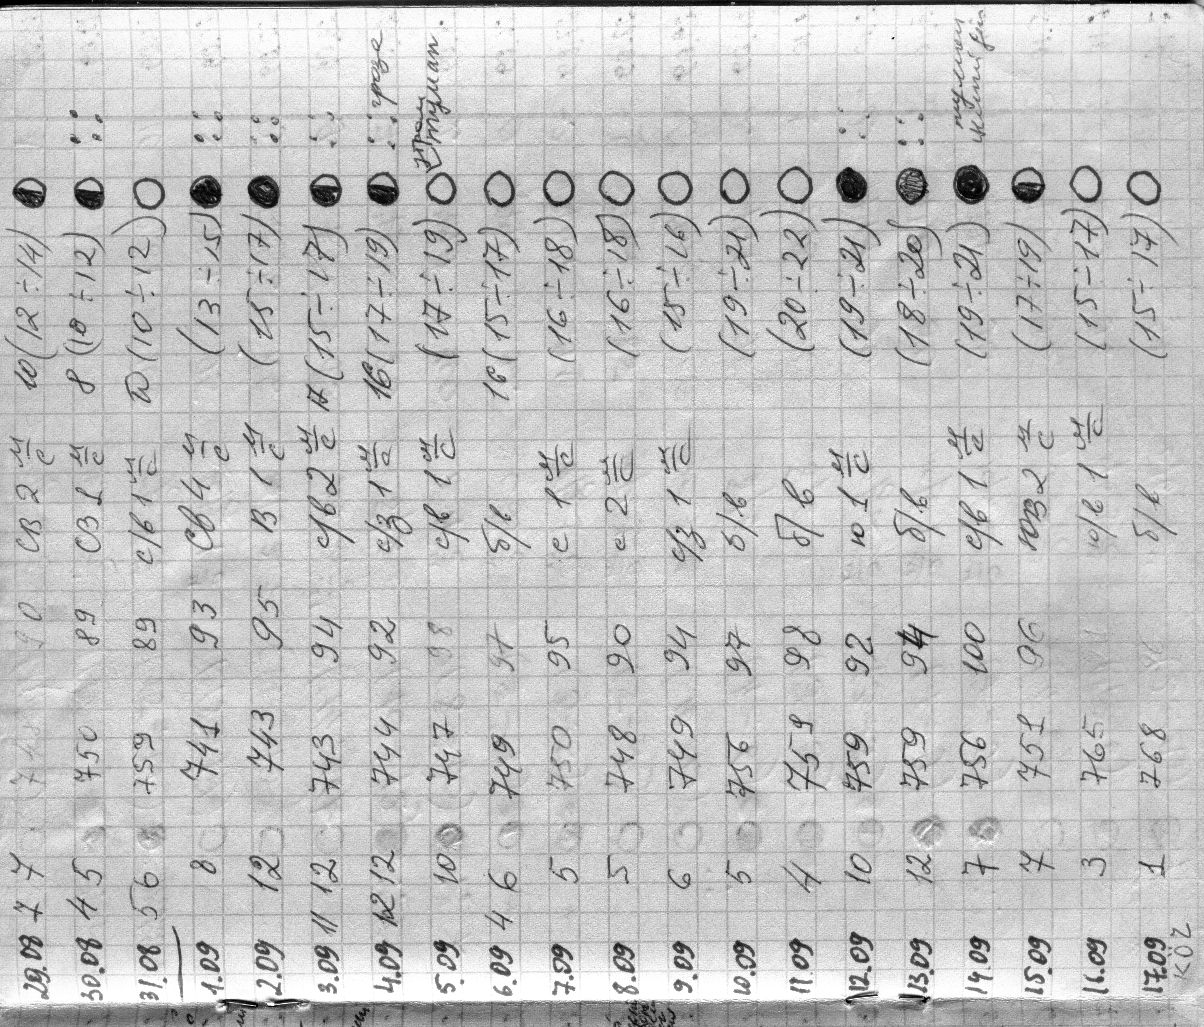 29.08 7 7 745 90 СВ 2 м/с 10 (12÷14)
30.08 4 5 750 89 СЗ 1 м/с 8 (10÷12)
31.08 5 6 759 89 с/в 1 м/с 10 (10÷12)
1.09 8 741 93 СВ 4 м/с (13÷15)
2.09 12 743 95 В 1 м/с (15÷17)
3.09 11 12 743 94 с/в 2 м/с 17 (15÷17)
4.09 12 12 744 92 с/з 1 м/с 16 (17÷19) гроза
5.09 10 747 98 с/в 1 м/с (17÷19) утром туман.
6.09 4 6 749 97 б/в 16 (15÷17)
7.09 5 750 95 с 1 м/с (16÷18)
8.09 5 748 90 с 2 м/с (16÷18)
9.09 6 749 94 с/з 1 м/с (15÷16)
10.09 5 756 97 б/в (19÷21)
11.09 4 759 98 б/в (20÷22)
12.09 10 759 92 ю 1 м/с (19÷21)
13.09 12 759 94 б/в (18÷20)
14.09 7 756 100 с/в 1 м/с (19÷21) туман
15.09 7 751 96 ЮЗ 2 м/с (17÷19)
16.09 3 765 ю/в 1 м/с (15÷17)
17.09 1 768 б/в (15÷17)